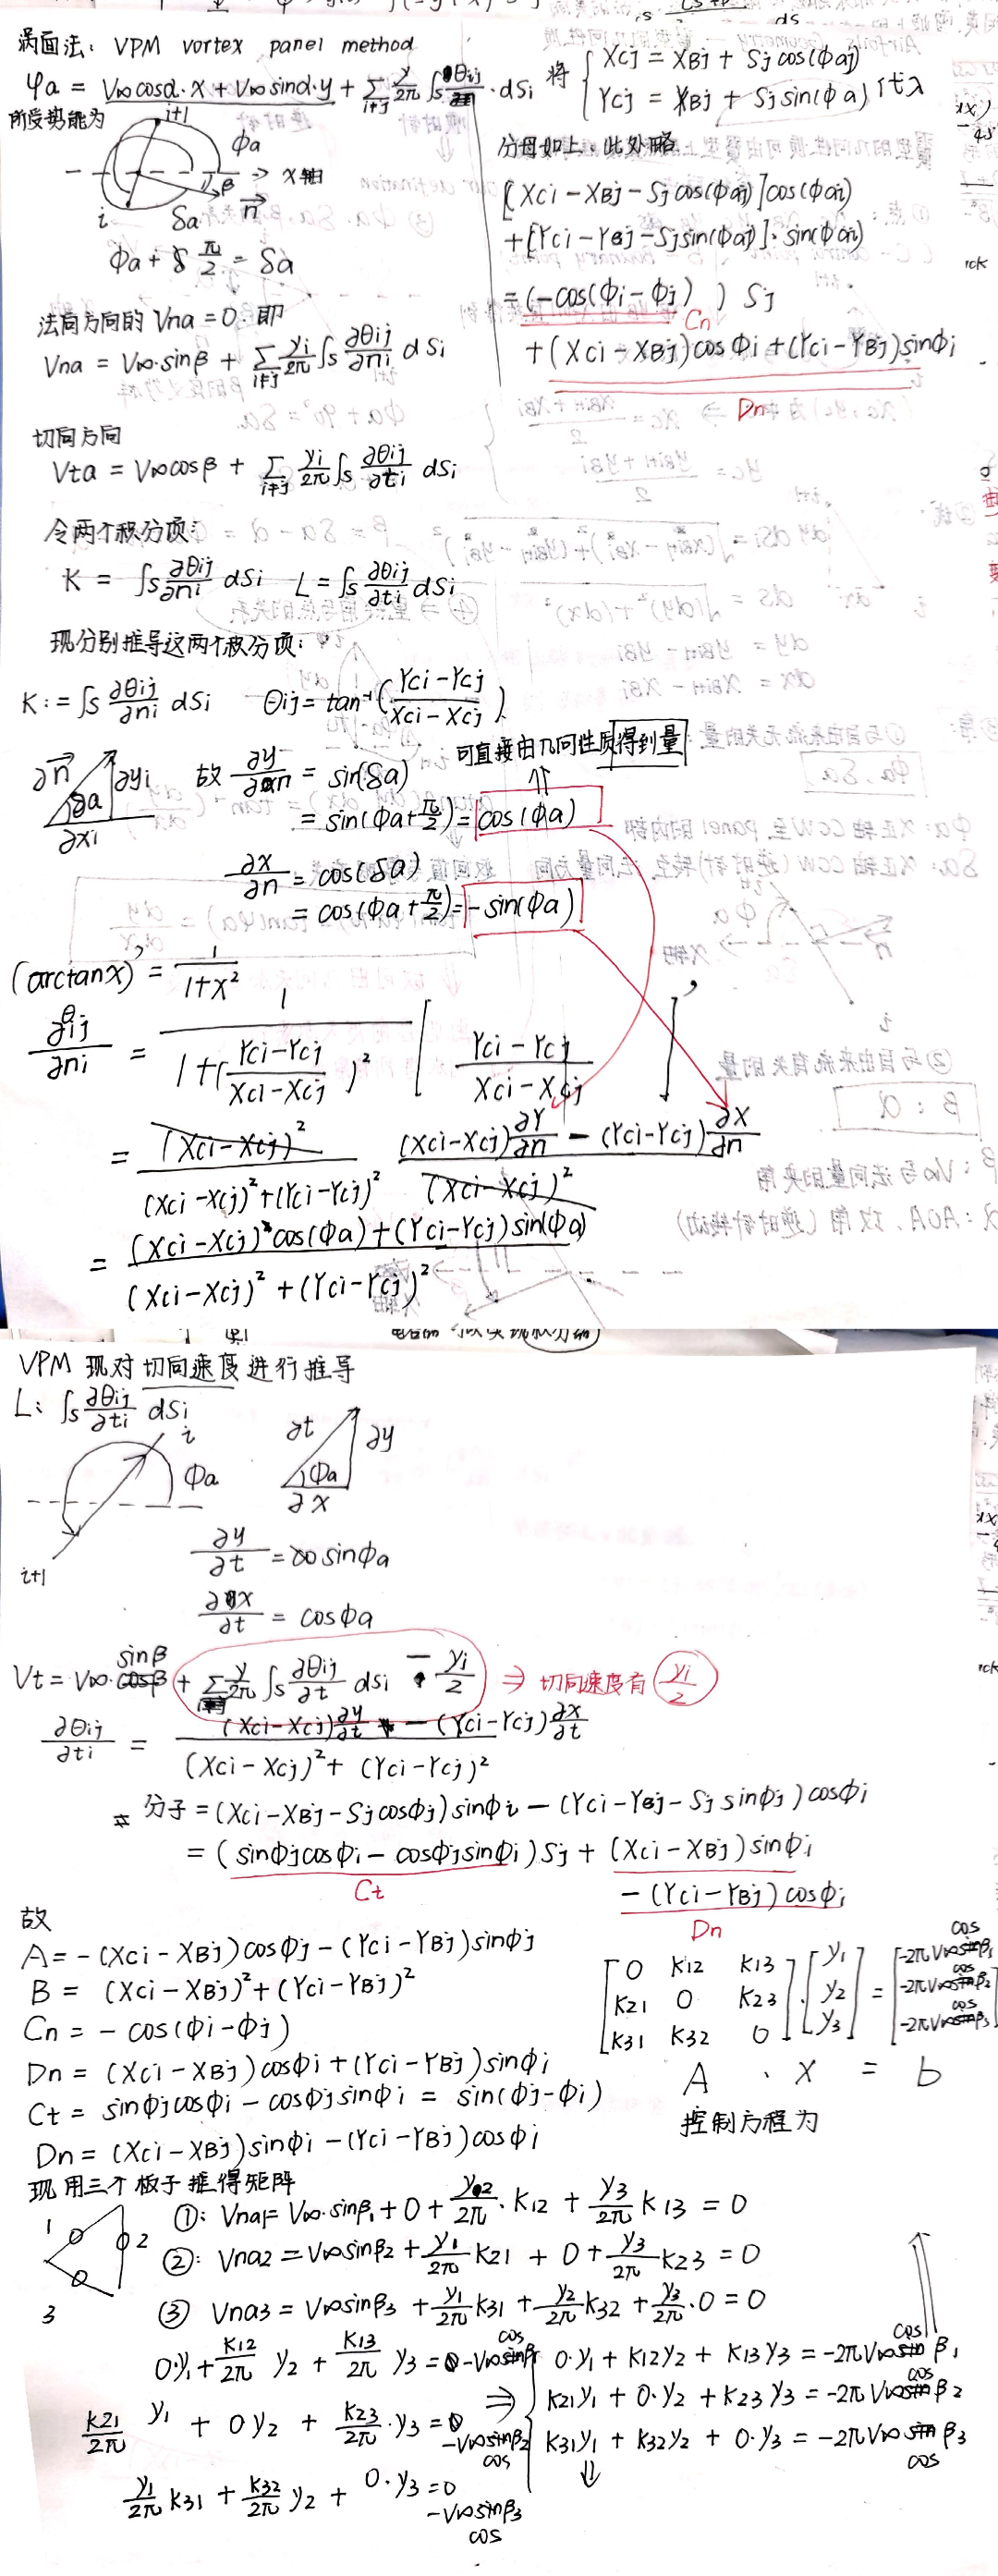 涡面法: VPM vortex panel method
φa = V∞cosα·x + V∞sinα·y + Σ(i≠j) γ/2π ∫s θij·dSi
所受势能为
i+1
φa
β
x轴
i
δa
n
φa + π/2 = δa
法向方向的 Vna = 0. 即
Vna = V∞·sinβ + Σ(i≠j) γi/2π ∫s ∂θij/∂ni dSi
切向方向
Vta = V∞cosβ + Σ(i≠j) γi/2π ∫s ∂θij/∂ti dSi
令两个积分项:
K = ∫s ∂θij/∂ni dSi L = ∫s ∂θij/∂ti dSi
现分别推导这两个积分项:
K: = ∫s ∂θij/∂ni dSi θij = tan⁻¹(Yci-Ycj / Xci-Xcj)
∂n ∂yi δa ∂xi
故 ∂y/∂n = sin(δa)
可直接由几何性质得到量
= sin(φa+π/2) = cos(φa)
∂x/∂n = cos(δa)
= cos(φa+π/2) = -sin(φa)
(arctanx)' = 1/1+x²
∂θij/∂ni = 1/1+(Yci-Ycj/Xci-Xcj)² [Yci-Ycj/Xci-Xcj]'
= (Xci-Xcj)²/(Xci-Xcj)²+(Yci-Ycj)² (Xci-Xcj)∂Y/∂n - (Yci-Ycj)∂X/∂n/(Xci-Xcj)²
= (Xci-Xcj)cos(φa)+(Yci-Ycj)sin(φa)/(Xci-Xcj)²+(Yci-Ycj)²
将 { Xcj = XBj + Sj cos(φaj)
Ycj = YBj + Sj sin(φa) 代入
分母如上, 此处略
[Xci-XBj-Sj cos(φaj)]cos(φai)
+[Yci-YBj-Sj sin(φaj)]·sin(φai)
= (-cos(φi-φj)) Sj
Cn
+(Xci-XBj)cosφi+(Yci-YBj)sinφi
Dn
VPM 现对切向速度进行推导
L: ∫s ∂θij/∂ti dSi
i
φa
i+1
∂t ∂y φa ∂x
∂y/∂t = sinφa
∂x/∂t = cosφa
Vt = V∞·sinβ + Σ γ/2π ∫s ∂θij/∂t dsi - γi/2 ⇒ 切向速度有 γi/2
∂θij/∂ti = (Xci-Xcj)∂y/∂t - (Yci-Ycj)∂x/∂t/(Xci-Xcj)²+(Yci-Ycj)²
分子 = (Xci-XBj-Sjcosφj)sinφi - (Yci-YBj-Sj sinφj)cosφi
= (sinφjcosφi - cosφjsinφi)Sj + (Xci-XBj)sinφi
Ct
-(Yci-YBj)cosφi
Dn
故
A = -(Xci-XBj)cosφj-(Yci-YBj)sinφj
B = (Xci-XBj)²+(Yci-YBj)²
Cn = -cos(φi-φj)
Dn = (Xci-XBj)cosφi+(Yci-YBj)sinφi
Ct = sinφjcosφi - cosφjsinφi = sin(φj-φi)
Dn = (Xci-XBj)sinφi-(Yci-YBj)cosφi
[0 K12 K13] [γ1] [-2πV∞cosβ1]
[K21 0 K23]·[γ2] = [-2πV∞cosβ2]
[K31 K32 0] [γ3] [-2πV∞cosβ3]
A · X = b
控制方程为
现用三个板子推得矩阵
1 2 3
①: Vna1 = V∞·sinβ1 + 0 + γ2/2π·K12 + γ3/2π K13 = 0
②: Vna2 = V∞sinβ2 + γ1/2π K21 + 0 + γ3/2π K23 = 0
③ Vna3 = V∞sinβ3 + γ1/2π K31 + γ2/2π K32 + γ3/2π·0 = 0
0·γ1 + K12/2π γ2 + K13/2π γ3 = -V∞cosβ1
K21/2π γ1 + 0γ2 + K23/2π·γ3 = -V∞sinβ2 cos
γ1/2π K31 + K32/2π γ2 + 0·γ3 = 0 -V∞sinβ3 cos
⇒ { 0·γ1 + K12γ2 + K13γ3 = -2πV∞cosβ1
K21γ1 + 0·γ2 + K23γ3 = -2πV∞cosβ2
K31γ1 + K32γ2 + 0·γ3 = -2πV∞cosβ3
⇓